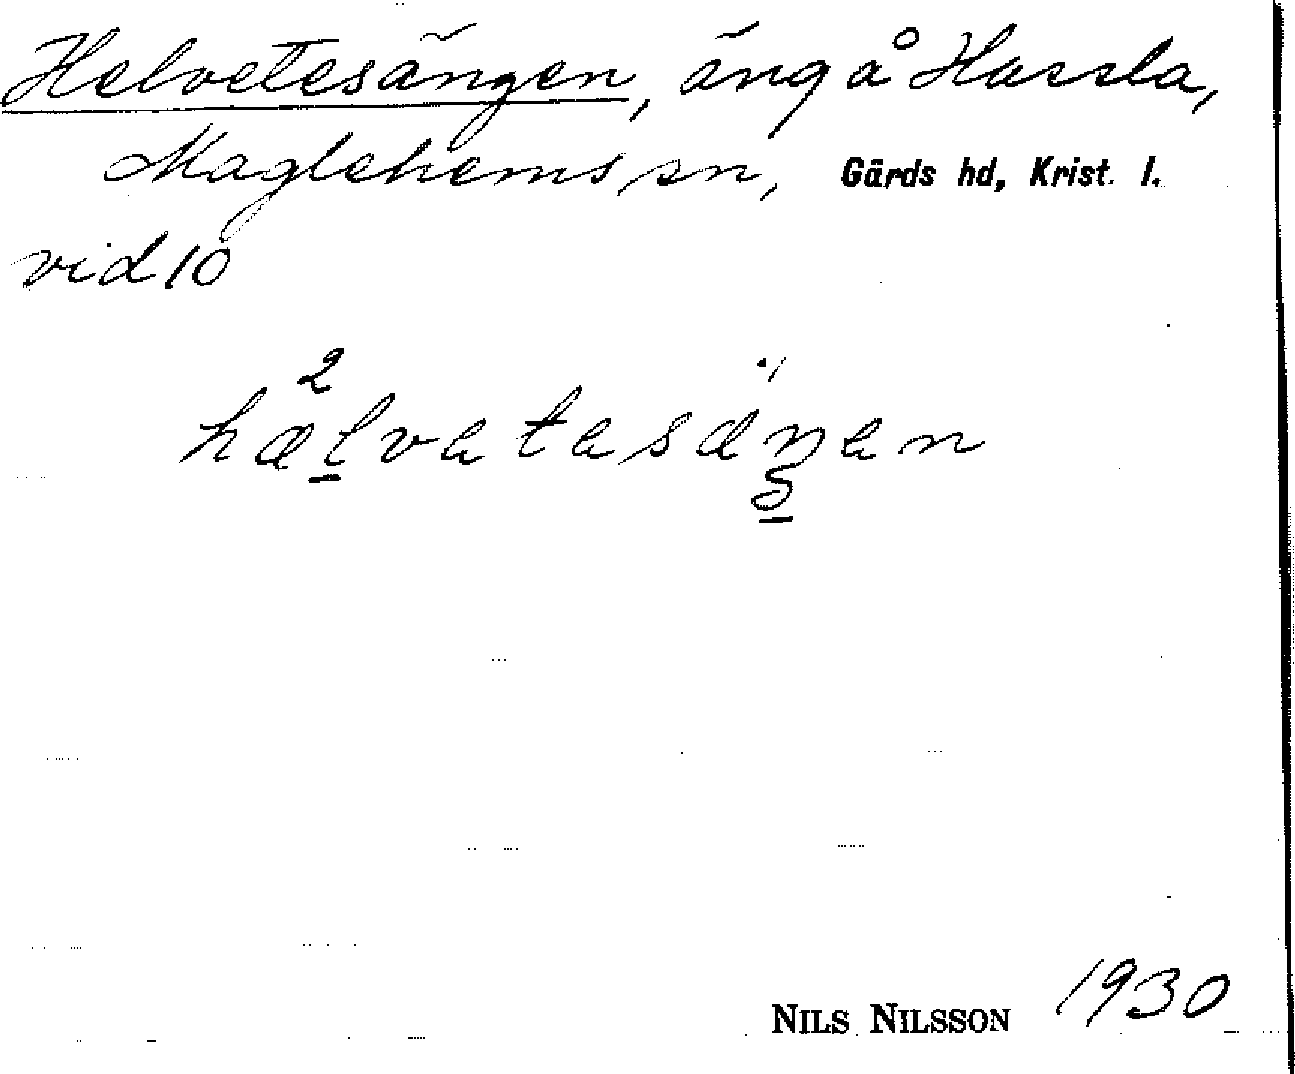 Helvetesängen, äng å Hassla,
Maglehems sn, Gärds hd, Krist. l.
vid 10
2
hælvatasäŋan
NILS NILSSON 1930